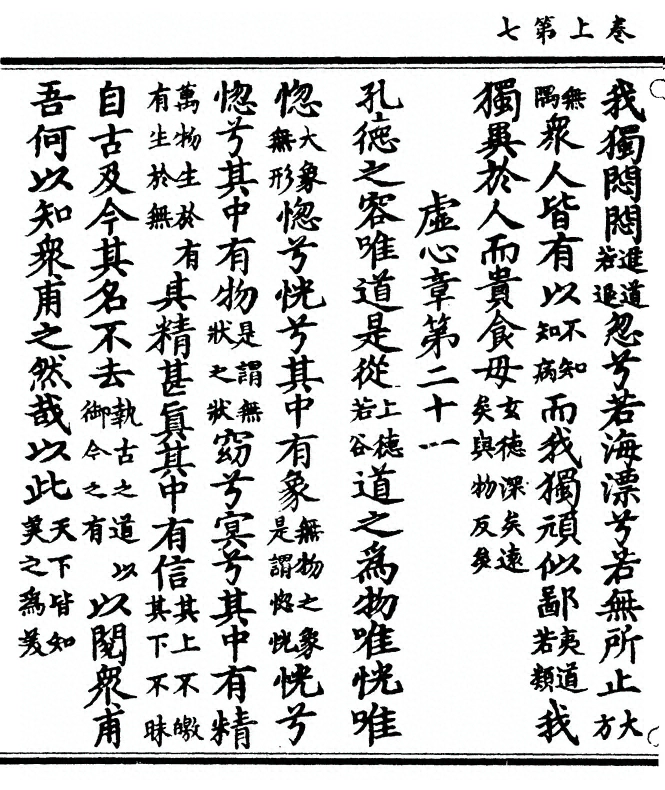 卷上第七
我獨悶悶進道若退忽兮若海漂兮若無所止大方
無隅衆人皆有以不知知病而我獨頑似鄙夷道若類我
獨異於人而貴食母玄德深矣遠矣與物反矣
虛心章第二十一
孔德之容唯道是從上德若谷道之爲物唯恍唯
惚大象無形惚兮恍兮其中有象無物之象是謂惚恍恍兮
惚兮其中有物是謂無狀之狀窈兮冥兮其中有精
萬物生於有有生於無其精甚眞其中有信其上不皦其下不昧
自古及今其名不去執古之道以御今之有以閱衆甫
吾何以知衆甫之然哉以此天下皆知美之爲美